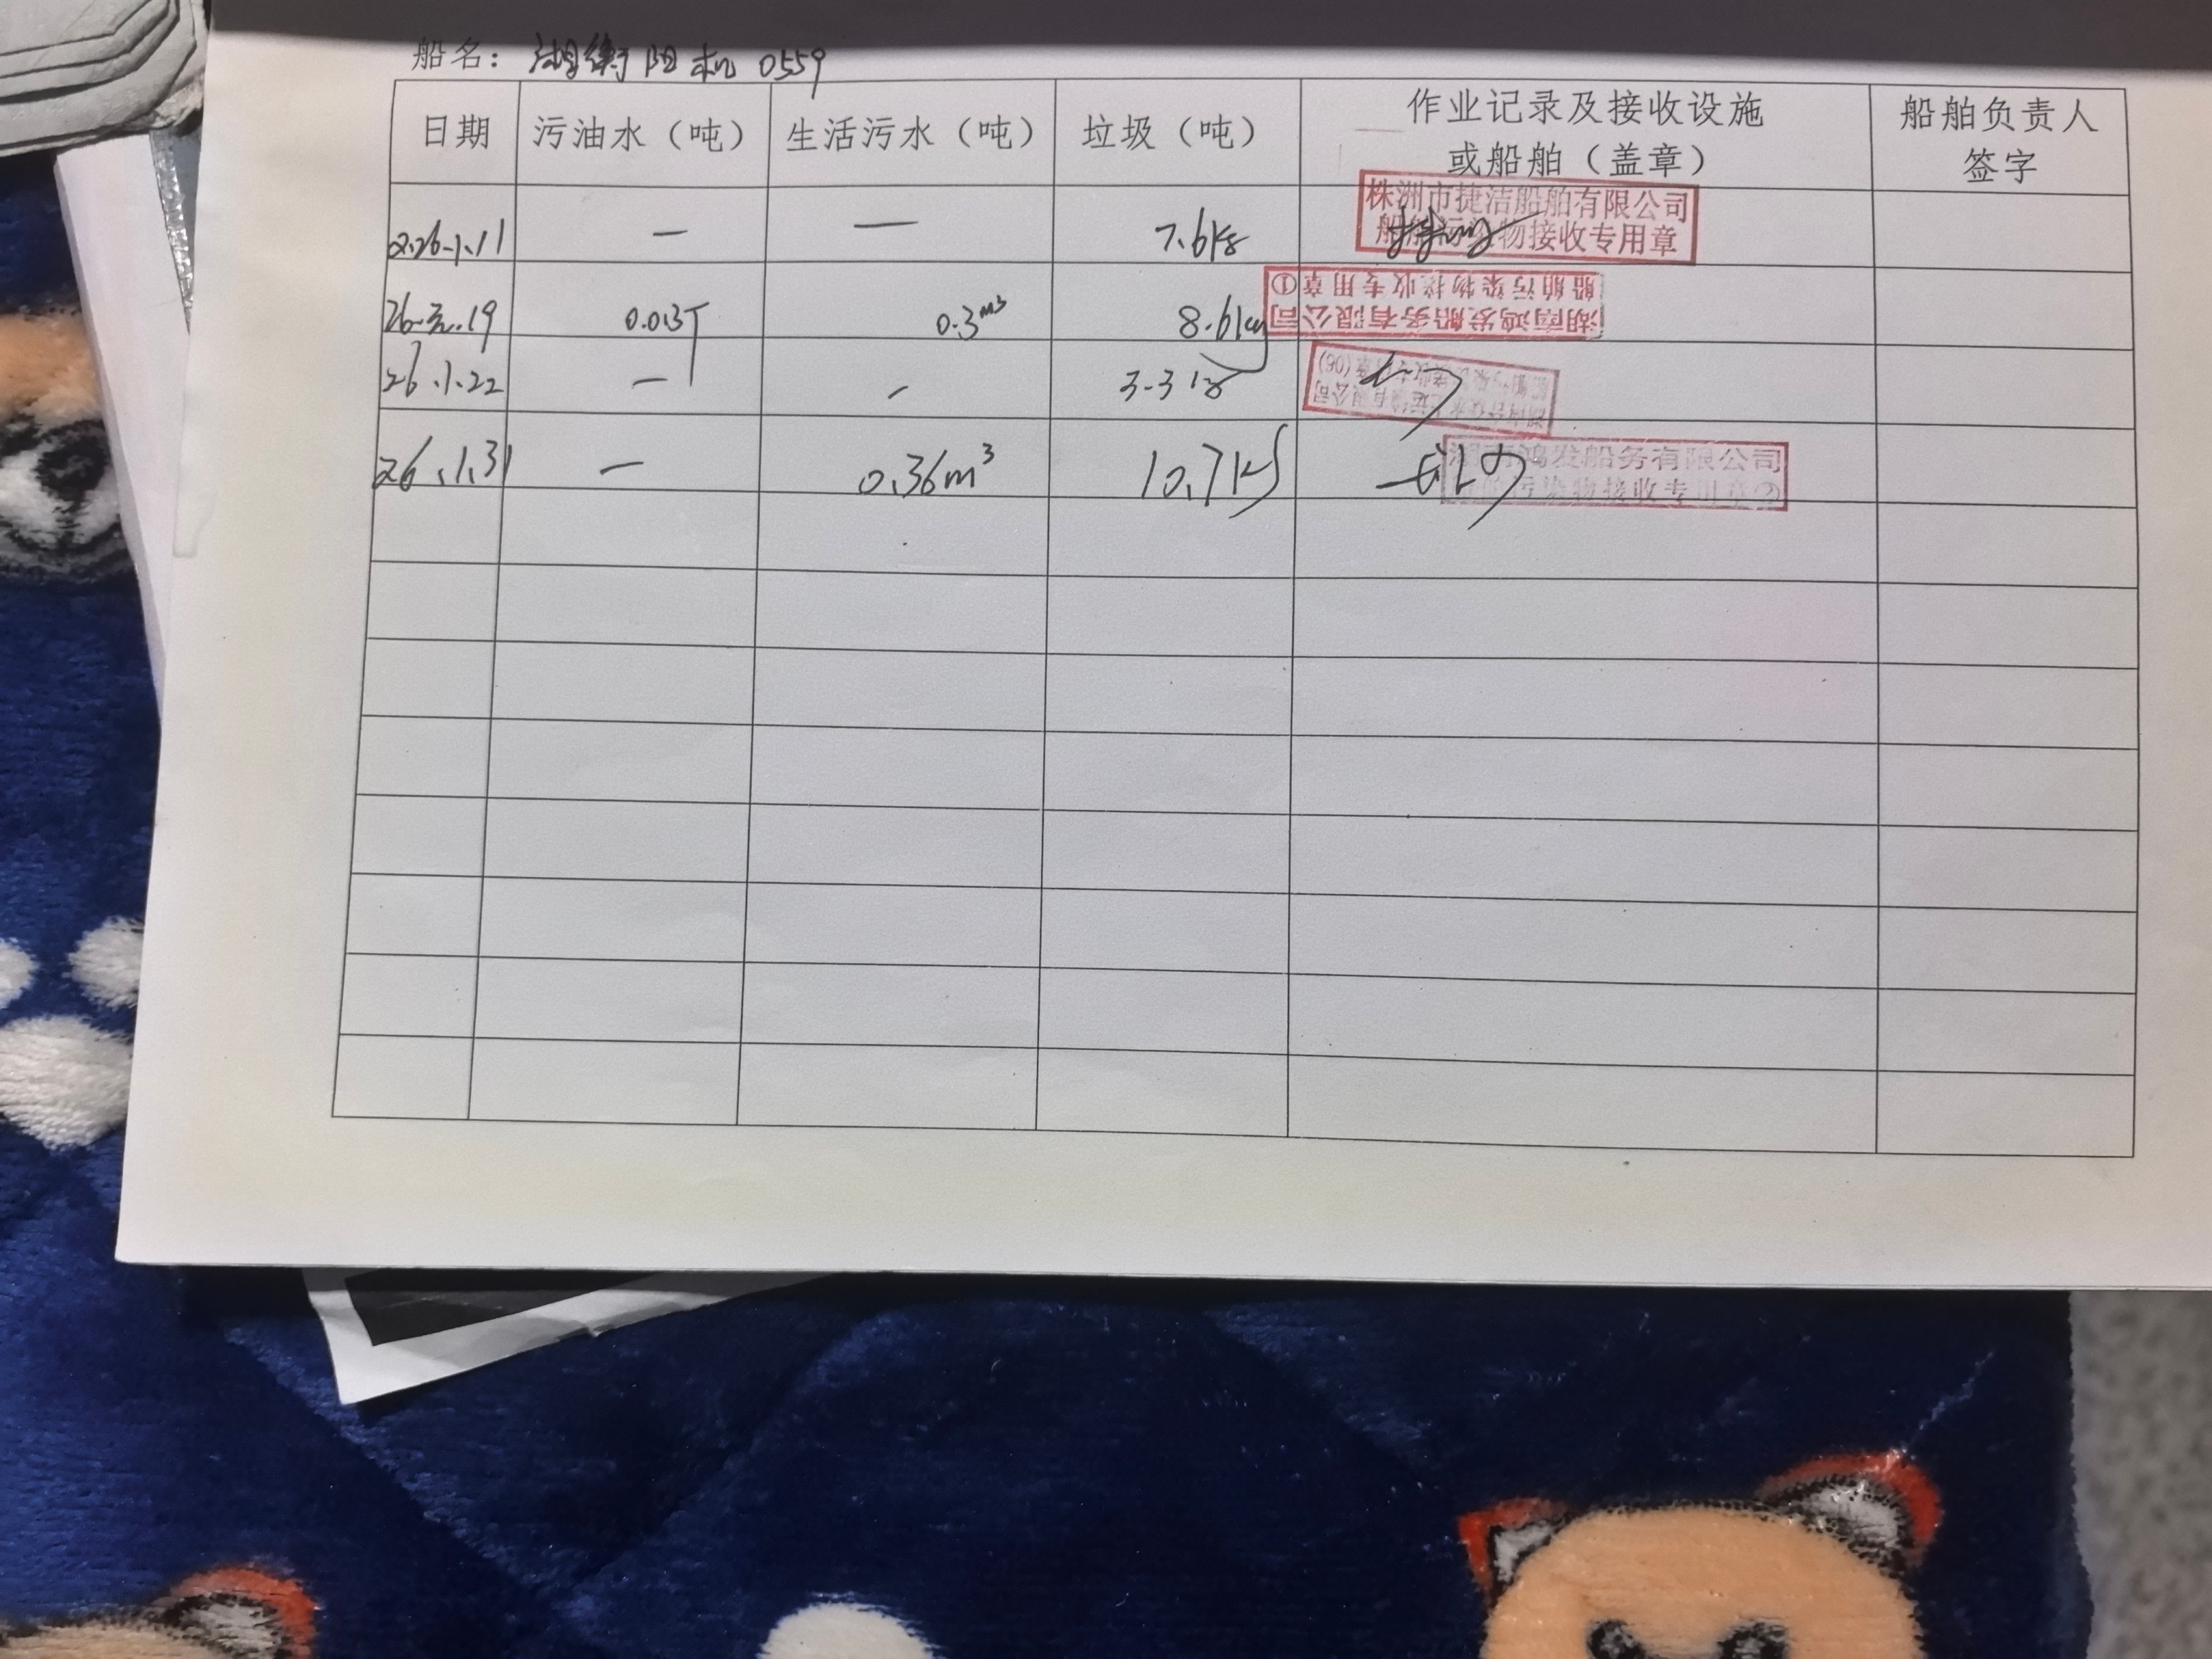 船名： 湘衡阳机 0559
日期 污油水（吨） 生活污水（吨） 垃圾（吨） 作业记录及接收设施或船舶（盖章） 船舶负责人签字
26.1.11 — — 7.6kg
株洲市捷洁船舶有限公司
船舶污染物接收专用章
26.元.19 0.013T 0.3m³ 8.6kg
湖南鸿发船务有限公司
船舶污染物接收专用章①
26.1.22 — - 3.3kg
26.1.31 — 0.36m³ 10.7kg
湖南鸿发船务有限公司
船舶污染物接收专用章②